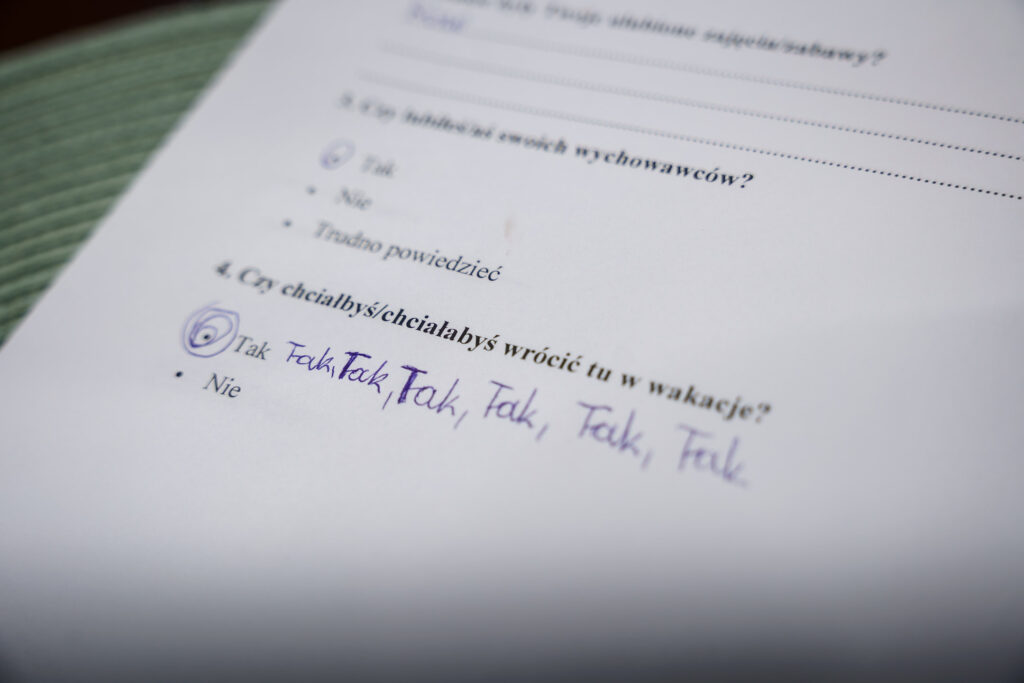 Twoje ulubione zajęcia/zabawy?
3. Czy lubiłeś/aś swoich wychowawców?
Tak
• Nie
• Trudno powiedzieć
4. Czy chciałbyś/chciałabyś wrócić tu w wakacje?
• Tak Tak, Tak, Tak, Tak, Tak, Tak
• Nie